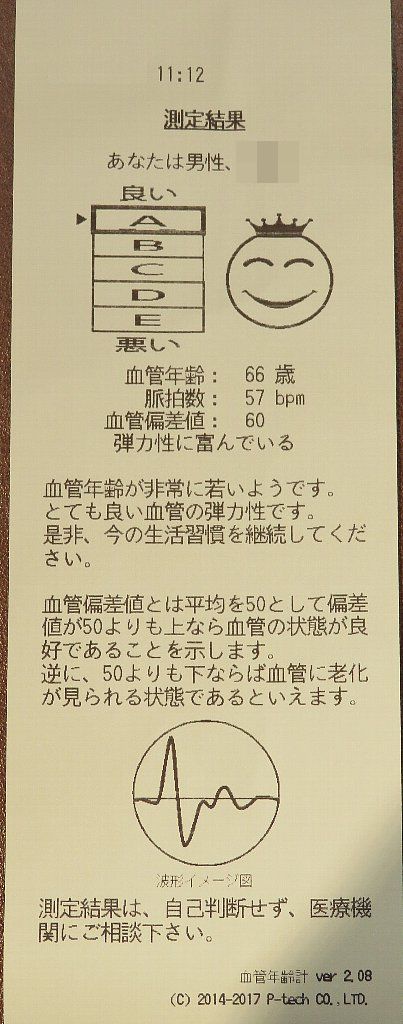 11:12
測定結果
あなたは男性、
良い
A
B
C
D
E
悪い
血管年齢： 66 歳
脈拍数： 57 bpm
血管偏差値： 60
弾力性に富んでいる
血管年齢が非常に若いようです。
とても良い血管の弾力性です。
是非、今の生活習慣を継続してくだ
さい。
血管偏差値とは平均を50として偏差
値が50よりも上なら血管の状態が良
好であることを示します。
逆に、50よりも下ならば血管に老化
が見られる状態であるといえます。
波形イメージ図
測定結果は、自己判断せず、医療機
関にご相談下さい。
血管年齢計 ver 2.08
(C) 2014-2017 P-tech CO.,LTD.